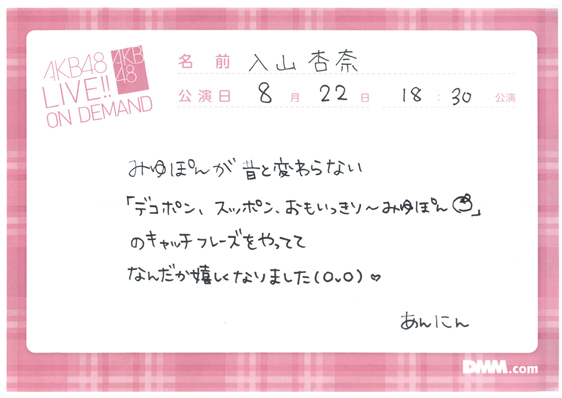 AKB48
LIVE!!
ON DEMAND
AKB
48
名前 入山杏奈
公演日 8月22日 18:30公演
みゆぽんが昔と変わらない
「デコポン、スッポン、おもいっきり〜みゆぽん」
のキャッチフレーズをやってて
なんだか嬉しくなりました(0ᴗ0)♡
あんにん
DMM.com